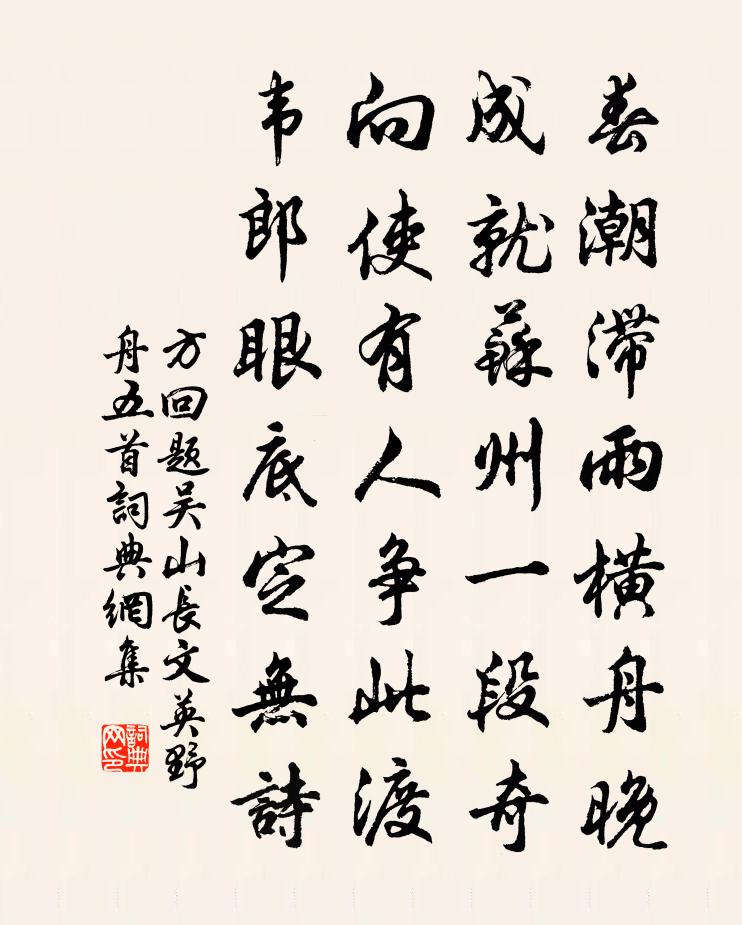 春潮滞雨橫舟晚
成就蘇州一段奇
向使有人争此渡
韦郎眼底定無詩
方回题吴山長文英野
舟五首詞典網集
詞典网印